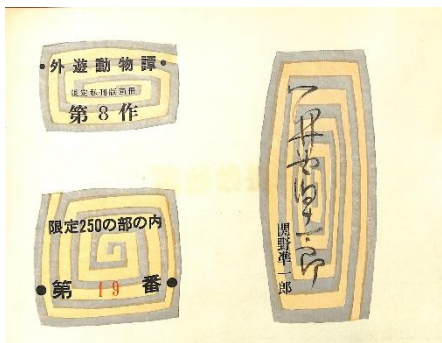 外遊動物譚
限定私刊版画冊
第8作
限定250の部の内
第 19 番
関野準一郎
関野準一郎